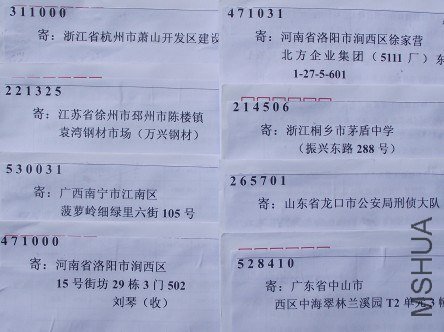 311000
寄：浙江省杭州市萧山开发区建设
221325
寄：江苏省徐州市邳州市陈楼镇
袁湾钢材市场（万兴钢材）
530031
寄：广西南宁市江南区
菠萝岭细绿里六街 105 号
471000
寄：河南省洛阳市涧西区
15 号街坊 29 栋 3 门 502
刘琴（收）
471031
寄：河南省洛阳市涧西区徐家营
北方企业集团（5111 厂）东
1-27-5-601
214506
寄：浙江桐乡市茅盾中学
（振兴东路 288 号）
265701
寄：山东省龙口市公安局刑侦大队
528410
寄：广东省中山市
西区中海翠林兰溪园 T2 单元 3
MSHUA